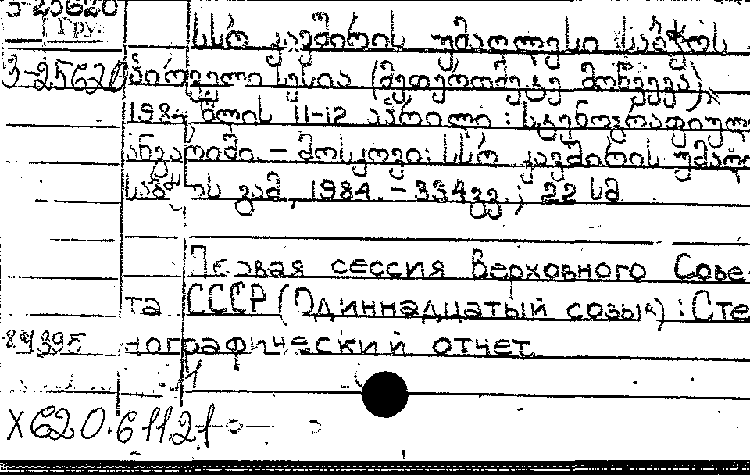 З-25620
Груз
სსრ კავშირის უმაღლესი საბჭოს
З-25620 პირველი სესია (მეთერთმეტე მოწვევა),
1984 წლის 11-12 აპრილი: სტენოგრაფიული
ანგარიში. - მოსკოვი: სსრ კავშირის უმაღლ
საბჭოს გამ., 1984. - 334 გვ.; 22 სმ
Первая сессия Верховного Сове-
та СССР (Одиннадцатый созыв): Сте-
нографический отчет
X620.61121